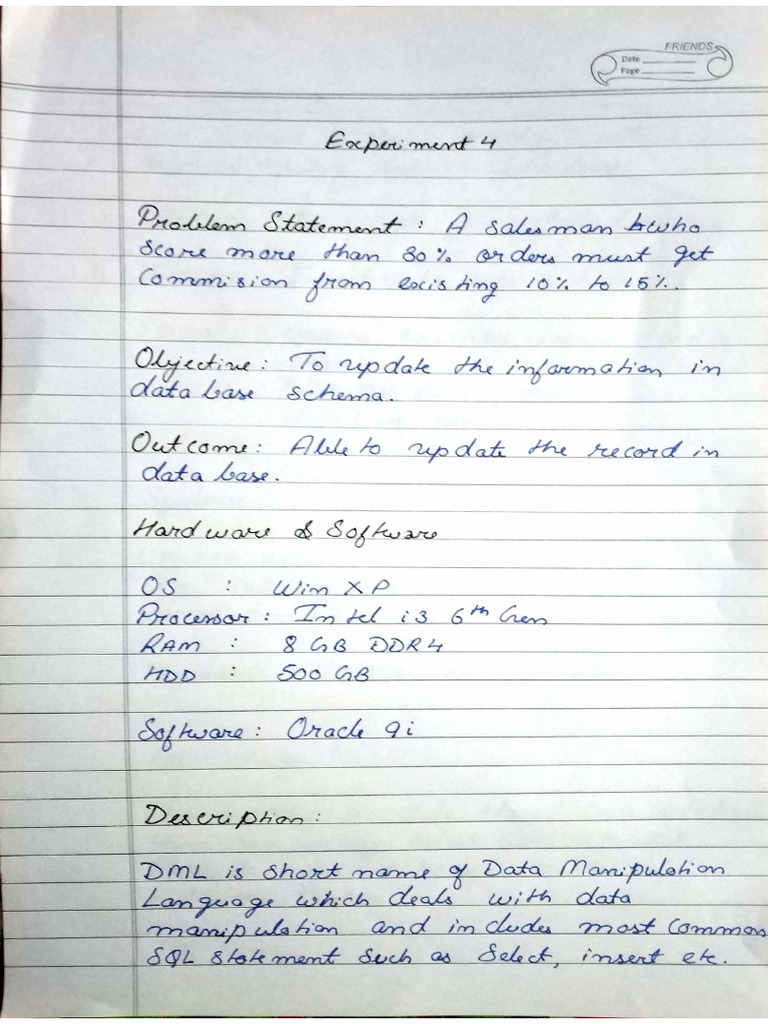 FRIENDS
Date
Page
Experiment 4
Problem Statement : A salesman who
score more than 80% orders must get
Commision from existing 10% to 15%.
Objective : To update the information in
data base schema.
Outcome : Able to update the record in
data base.
Hardware & Software
OS : Win XP
Processor : Intel i3 6th Gen
RAM : 8 GB DDR4
HDD : 500 GB
Software : Oracle 9i
Description :
DML is short name of Data Manipulation
Language which deals with data
manipulation and includes most common
SQL statement such as Select, insert etc.